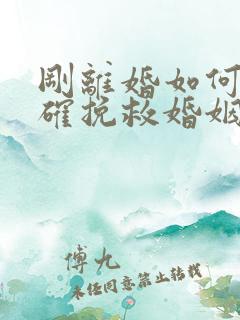 剛離婚如何
確挽救婚姻
傅九
未經同意禁止轉載